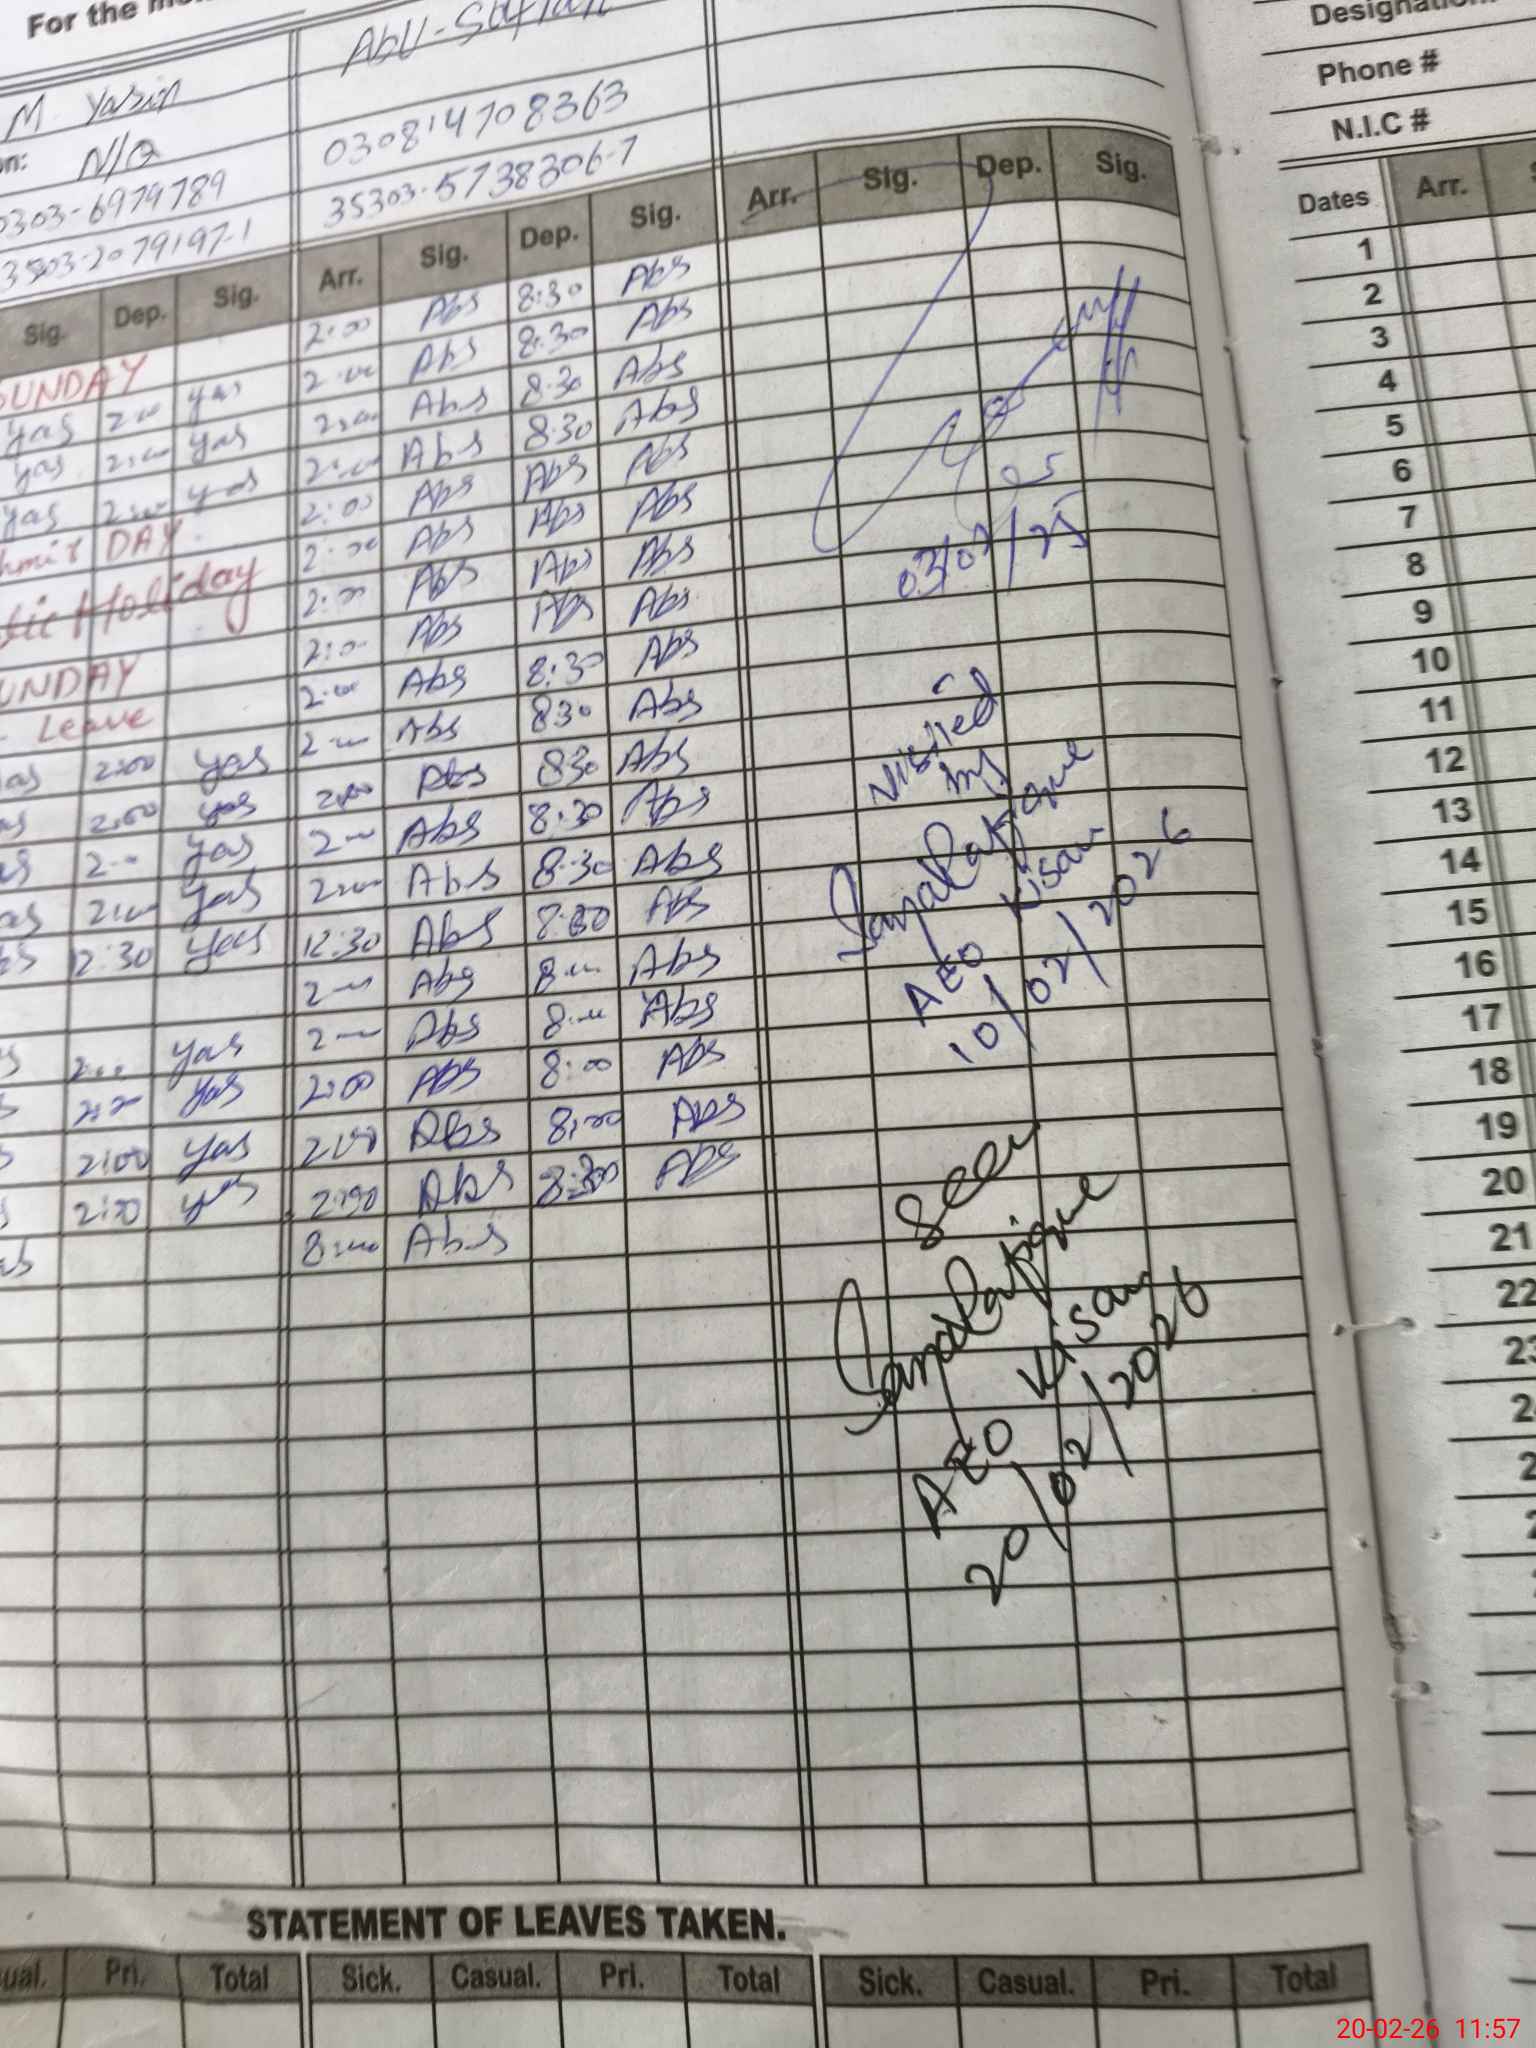 For the
M. Yasin
Abu-Sufian
N/Q
0303-6979789
030814708363
35303-2079197-1
35303-5738306-7
Sig. Dep. Sig. Arr. Sig. Dep. Sig. Arr. Sig. Dep. Sig.
2:00 Abs 8:30 Abs
SUNDAY 2:00 Abs 8:30 Abs
yas 2:00 yas 2:00 Abs 8:30 Abs
yas 2:00 yas 2:00 Abs 8:30 Abs
yas 2:00 yas 2:00 Abs Abs Abs
DAY 2:00 Abs Abs Abs
Holiday 2:00 Abs Abs Abs
2:00 Abs Abs Abs
SUNDAY 2:00 Abs 8:30 Abs
Leave 2:00 Abs 830 Abs
yas 2:00 yas 2:00 Abs 830 Abs
2:00 yas 2:00 Abs 8:30 Abs
2:00 yas 2:00 Abs 8:30 Abs
2:00 yas 12:30 Abs 8:30 Abs
12:30 yas 2:00 Abs 8:00 Abs
2:00 Abs 8:00 Abs
2:00 yas 2:00 Abs 8:00 Abs
2:00 yas 2:00 Abs 8:00 Abs
2:00 yas 2:00 Abs Abs
2:00 yas 8:00 Abs
03/02/25
Visited
by
AEO Kisan
10/02/2026
Seen
AEO Kisan
20/02/2026
STATEMENT OF LEAVES TAKEN.
ual. Pri. Total Sick. Casual. Pri. Total Sick. Casual. Pri. Total
Designation
Phone #
N.I.C #
Dates Arr.
1
2
3
4
5
6
7
8
9
10
11
12
13
14
15
16
17
18
19
20
21
22
23
20-02-26 11:57